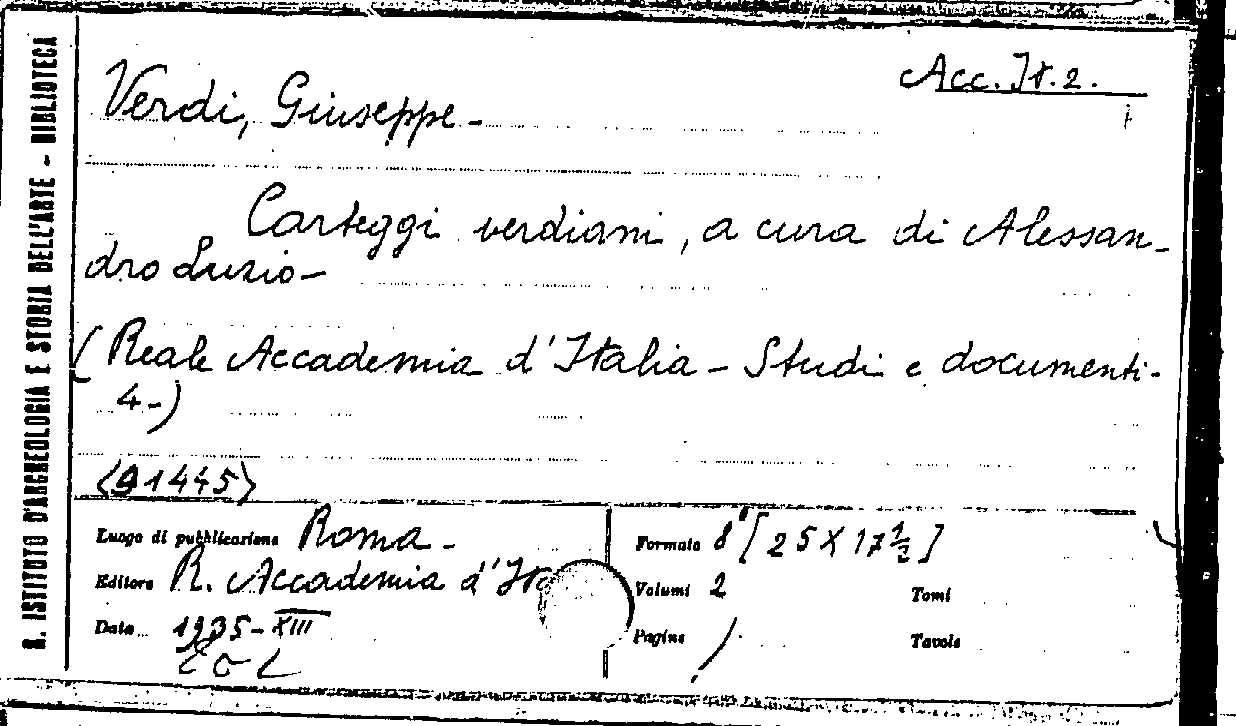 R. ISTITUTO D'ARCHEOLOGIA E STORIA DELL'ARTE - BIBLIOTECA
Acc. It. 2.
Verdi, Giuseppe -
Carteggi verdiani, a cura di Alessan-
dro Luzio -
(Reale Accademia d'Italia - Studi e documenti -
4 -)
(91445)
Luogo di pubblicazione Roma -
Editore R. Accademia d'Ita
Data 1935 - XIII
Formato 8° [25 X 17 1/2]
Volumi 2 Tomi
Pagine / Tavole